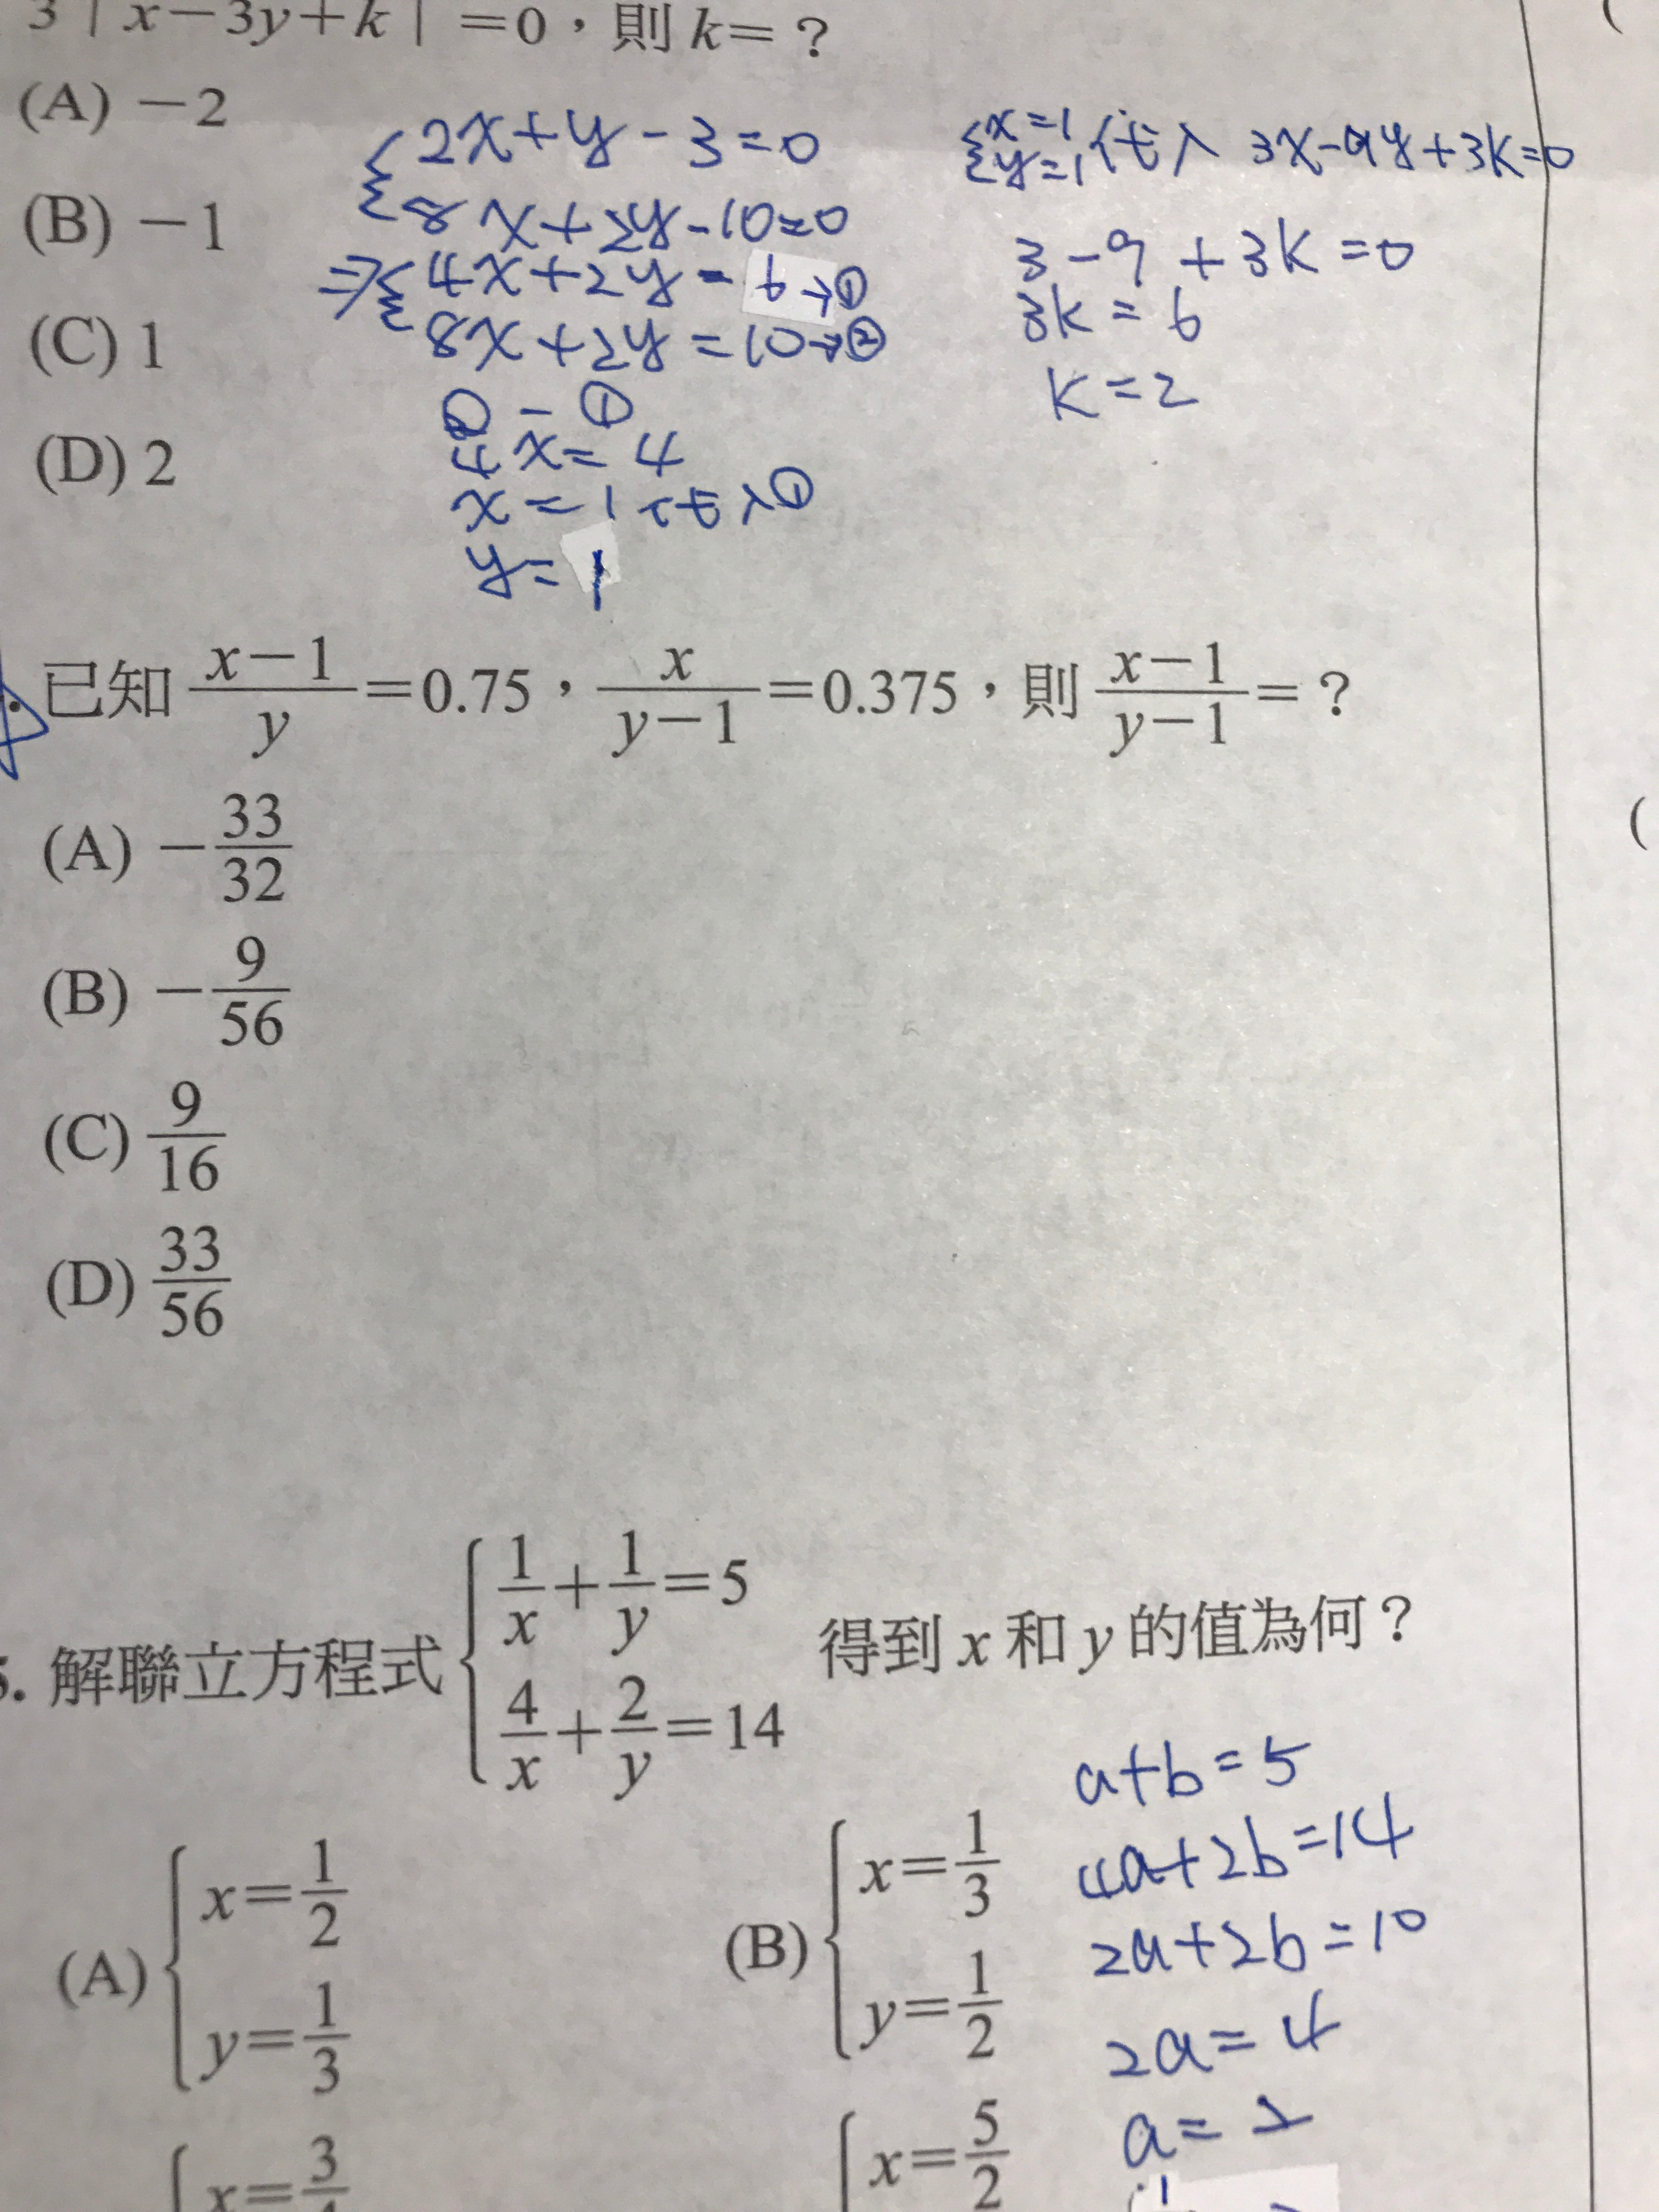 3 | x－3y＋k | ＝0，則 k＝？
(A) －2
(B) －1
(C) 1
(D) 2
2x+y-3=0
8x+2y-10=0
⇒ 4x+2y=6→①
8x+2y=10→②
②-①
4x=4
x=1代入①
y=1
x=1
y=1 代入 3x-9y+3k=0
3-9+3k=0
3k=6
k=2
已知 \frac{x－1}{y}＝0.75，\frac{x}{y－1}＝0.375，則 \frac{x－1}{y－1}＝？
(A) －\frac{33}{32}
(B) －\frac{9}{56}
(C) \frac{9}{16}
(D) \frac{33}{56}
解聯立方程式 { \frac{1}{x}＋\frac{1}{y}＝5
\frac{4}{x}＋\frac{2}{y}＝14 得到 x 和 y 的值為何？
(A) { x＝\frac{1}{2}
y＝\frac{1}{3}
(B) { x＝\frac{1}{3}
y＝\frac{1}{2}
x＝\frac{5}{2}
a+b=5
4a+2b=14
2a+2b=10
2a=4
a=2